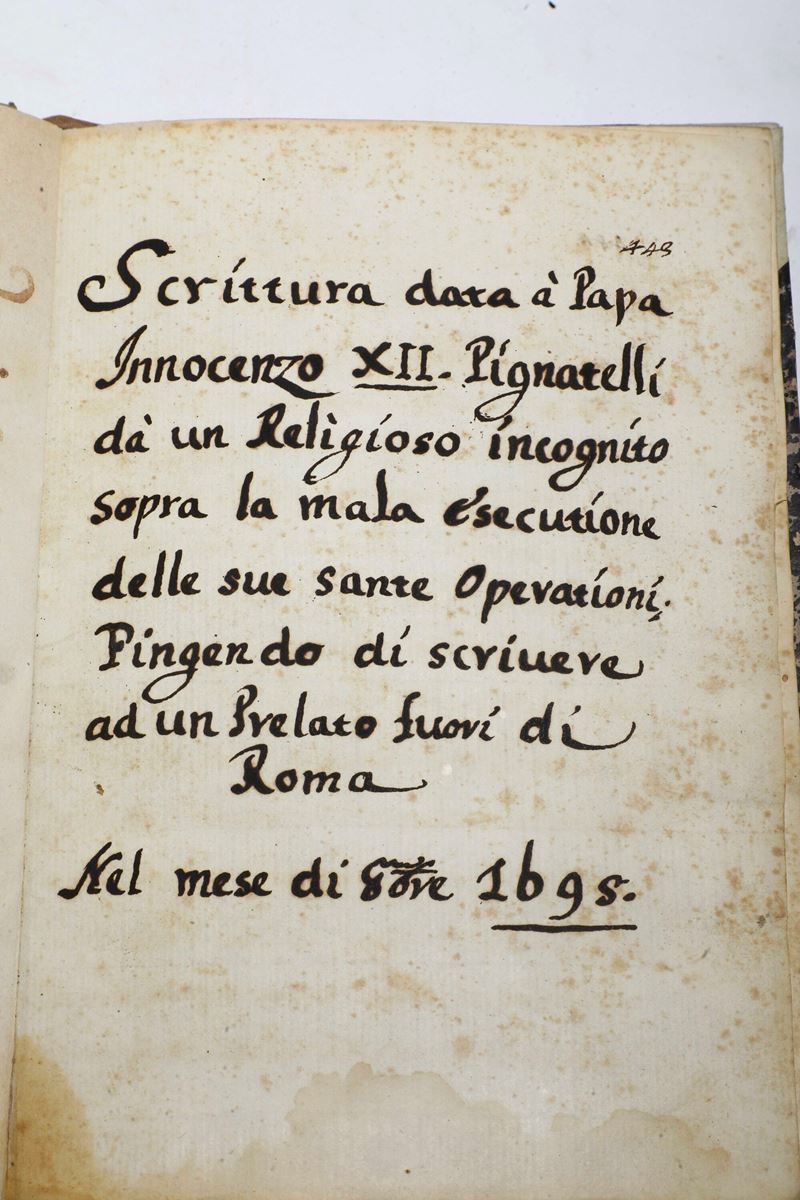 443
Scrittura data à Papa
Innocenzo XII. Pignatelli
dà un Religioso incognito
sopra la mala esecutione
delle sue sante Operationi;
Fingendo di scriuere
ad un Prelato fuori di
Roma
Nel mese di 8bre 1695.